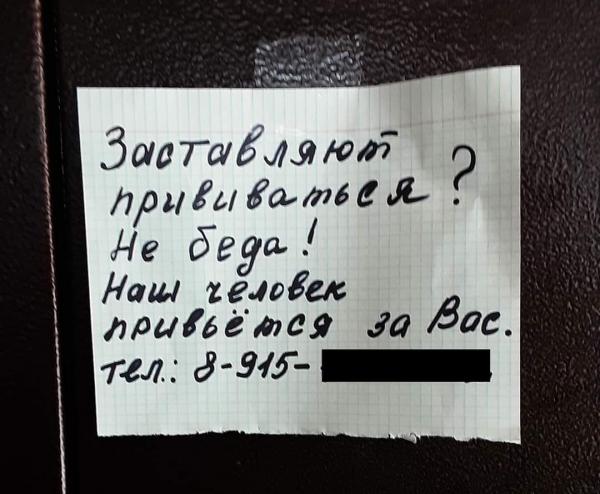 Заставляют
прививаться?
Не беда!
Наш человек
привьётся за Вас.
тел.: 8-915-